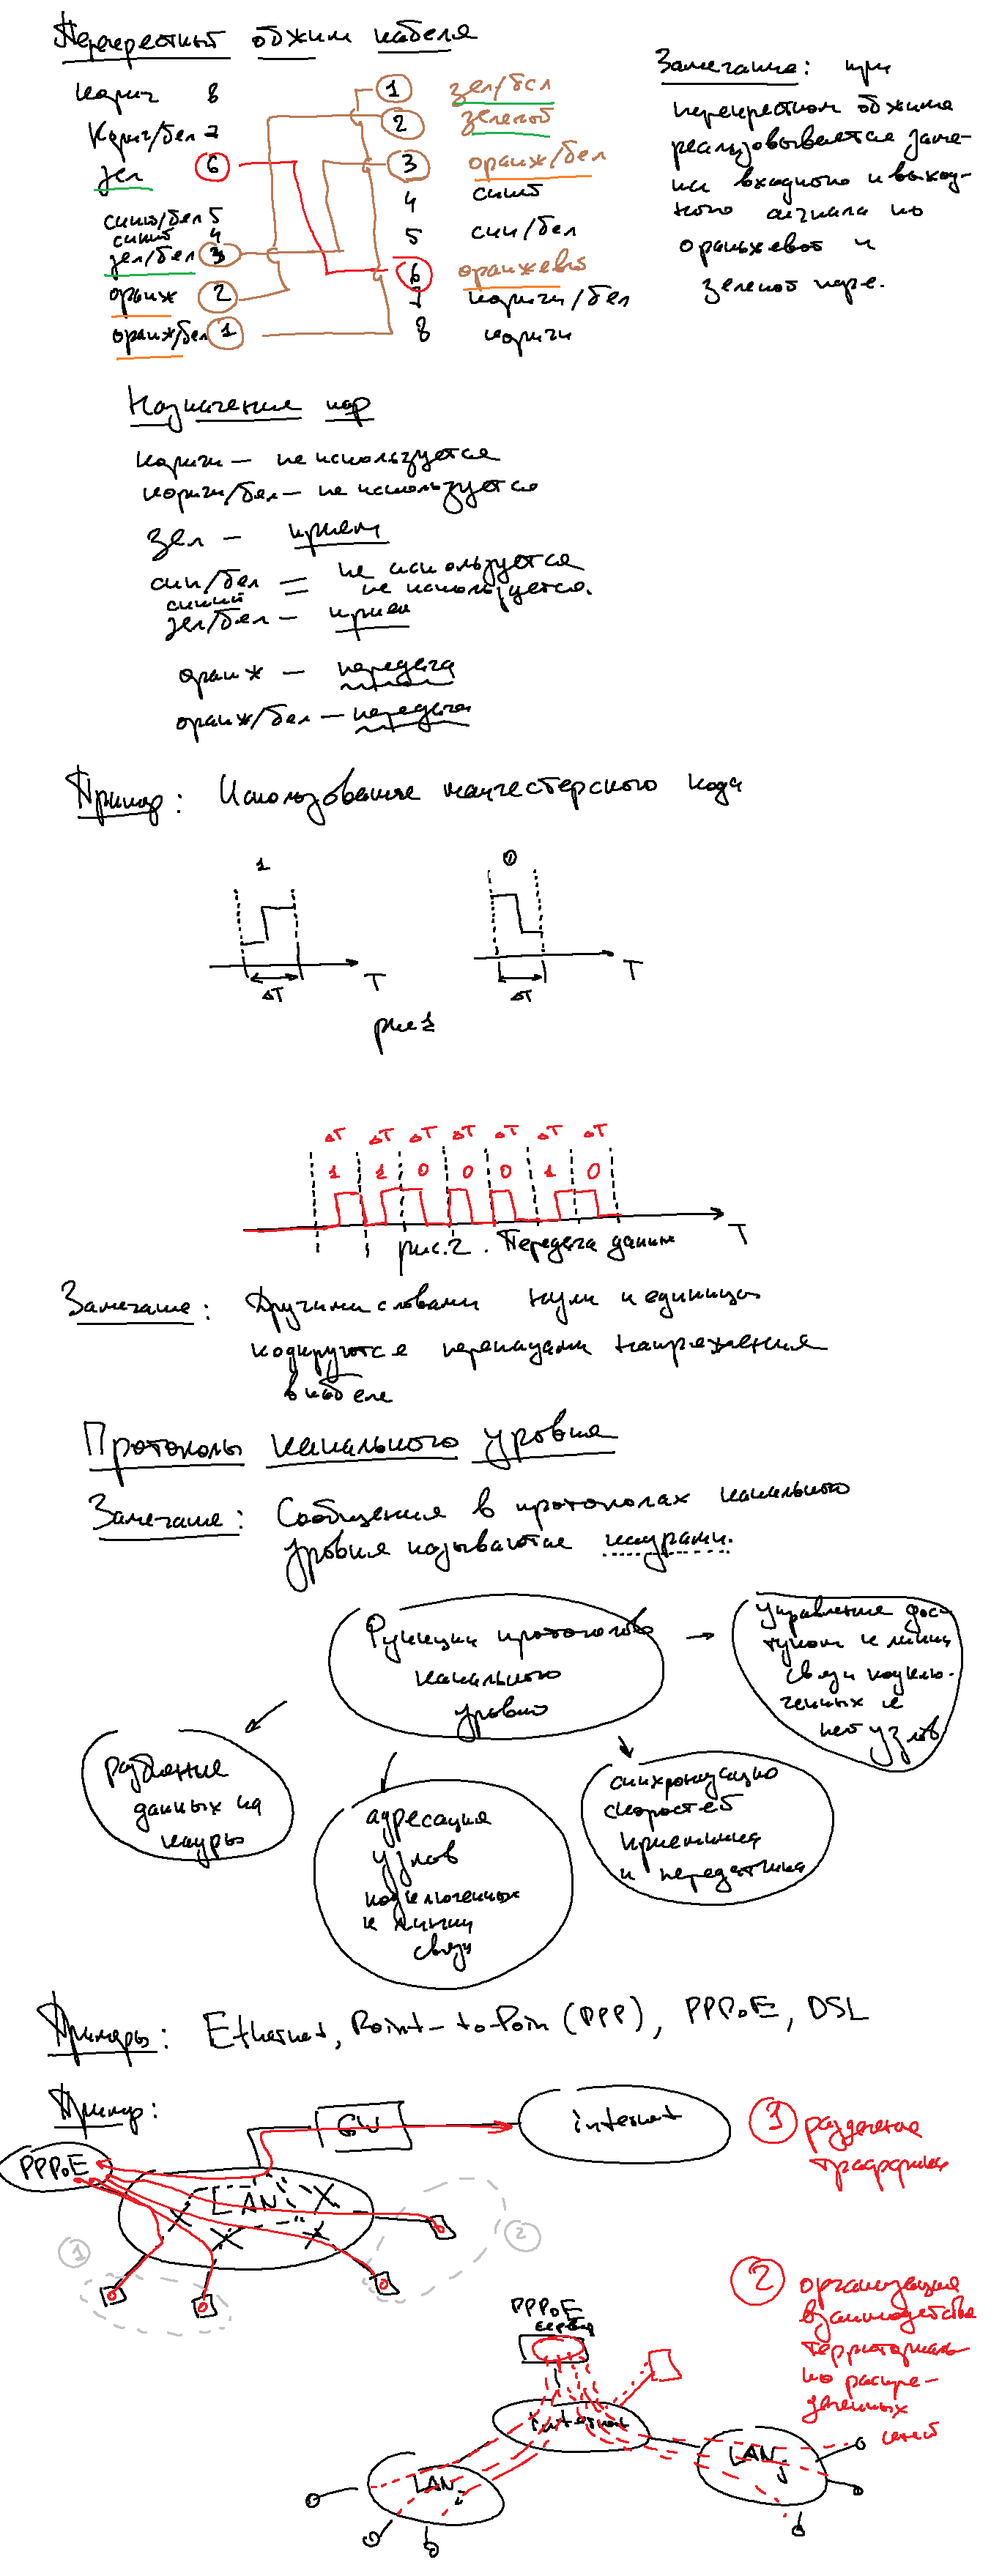 Перекрестный обжим кабеля
корич 8
Корич/бел 7
зел 6
синий/бел 5
синий 4
зел/бел 3
оранж 2
оранж/бел 1
1 зел/бел
2 зеленый
3 оранж/бел
4 синий
5 син/бел
6 оранжевый
7 коричн/бел
8 коричн
Замечание: при
перекрестном обжиме
реализовывается заме-
на входного и выход-
ного сигнала по
оранжевой и
зеленой паре.
Назначение пар
коричн — не используется
коричн/бел — не используется
зел — прием
син/бел — не используется
синий — не используется.
зел/бел — прием
оранж — передача
оранж/бел — передача
Пример: Использование манчестерского кода
1
0
ΔT
T
ΔT
T
рис 1
ΔT ΔT ΔT ΔT ΔT ΔT ΔT
1 1 0 0 0 1 0
T
рис. 2. Передача данных
Замечание: Другими словами нули и единицы
кодируются перепадами напряжения
в кабеле
Протоколы канального уровня
Замечание: Сообщения в протоколах канального
уровня называются кадрами.
Функции протоколов
канального
уровня
управление дос-
тупом к линии
связи подклю-
ченных к
ней узлов
разбиение
данных на
кадры
адресация
узлов
подключенных
к линии
связи
синхронизация
скоростей
приемника
и передатчика
Примеры: Ethernet, Point-to-Poin (PPP), PPPoE, DSL
Пример:
GW
internet
PPPoE
LAN
1
2
1 разделение
траффика
2 организация
взаимодейства
территориаль
но распре-
деленных
сетей
PPPoE
сервер
internet
LAN
LAN